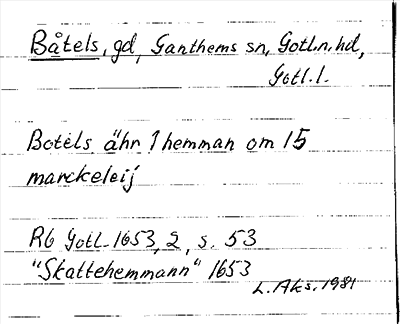 Båtels, gd, Ganthems sn, Gotl.n.hd,
Gotl.l.
Botels ähr 1 hemman om 15
marckeleij
RG Gotl. 1653, 2, s. 53
"Skattehemmann" 1653
L. Aks. 1981